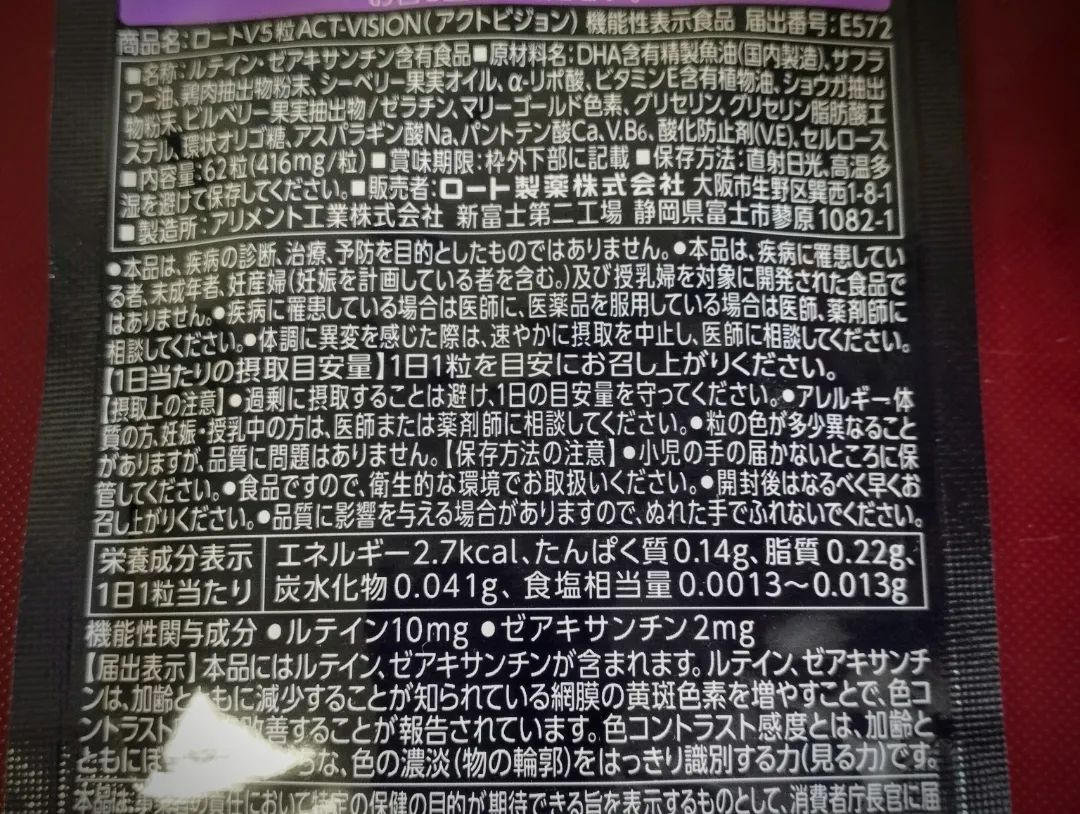 商品名:ロートV5粒ACT-VISION(アクトビジョン) 機能性表示食品 届出番号:E572
■名称:ルテイン・ゼアキサンチン含有食品■原材料名:DHA含有精製魚油(国内製造)、サフラ
ワー油、鶏肉抽出物粉末、シーベリー果実オイル、α-リポ酸、ビタミンE含有植物油、ショウガ抽出
物粉末、ビルベリー果実抽出物/ゼラチン、マリーゴールド色素、グリセリン、グリセリン脂肪酸エ
ステル、環状オリゴ糖、アスパラギン酸Na、パントテン酸Ca、V.B6、酸化防止剤(V.E)、セルロース
■内容量:62粒(416mg/粒)■賞味期限:枠外下部に記載■保存方法:直射日光、高温多
湿を避けて保存してください。■販売者:ロート製薬株式会社 大阪市生野区巽西1-8-1
■製造所:アリメント工業株式会社 新富士第二工場 静岡県富士市蓼原1082-1
●本品は、疾病の診断、治療、予防を目的としたものではありません。●本品は、疾病に罹患してい
る者、未成年者、妊産婦(妊娠を計画している者を含む。)及び授乳婦を対象に開発された食品で
はありません。●疾病に罹患している場合は医師に、医薬品を服用している場合は医師、薬剤師に
相談してください。●体調に異変を感じた際は、速やかに摂取を中止し、医師に相談してください。
【1日当たりの摂取目安量】1日1粒を目安にお召し上がりください。
【摂取上の注意】●過剰に摂取することは避け、1日の目安量を守ってください。●アレルギー体
質の方、妊娠・授乳中の方は、医師または薬剤師に相談してください。●粒の色が多少異なること
がありますが、品質に問題はありません。【保存方法の注意】●小児の手の届かないところに保
管してください。●食品ですので、衛生的な環境でお取扱いください。●開封後はなるべく早くお
召し上がりください。●品質に影響を与える場合がありますので、ぬれた手でふれないでください。
栄養成分表示 エネルギー2.7kcal、たんぱく質0.14g、脂質0.22g、
1日1粒当たり 炭水化物0.041g、食塩相当量0.0013～0.013g
機能性関与成分 ●ルテイン10mg ●ゼアキサンチン2mg
【届出表示】本品にはルテイン、ゼアキサンチンが含まれます。ルテイン、ゼアキサンチ
ンは、加齢とともに減少することが知られている網膜の黄斑色素を増やすことで、色コ
ントラスト 改善することが報告されています。色コントラスト感度とは、加齢と
ともにぼ な、色の濃淡(物の輪郭)をはっきり識別する力(見る力)です。
本品は、事業者の責任において特定の保健の目的が期待できる旨を表示するものとして、消費者庁長官に届